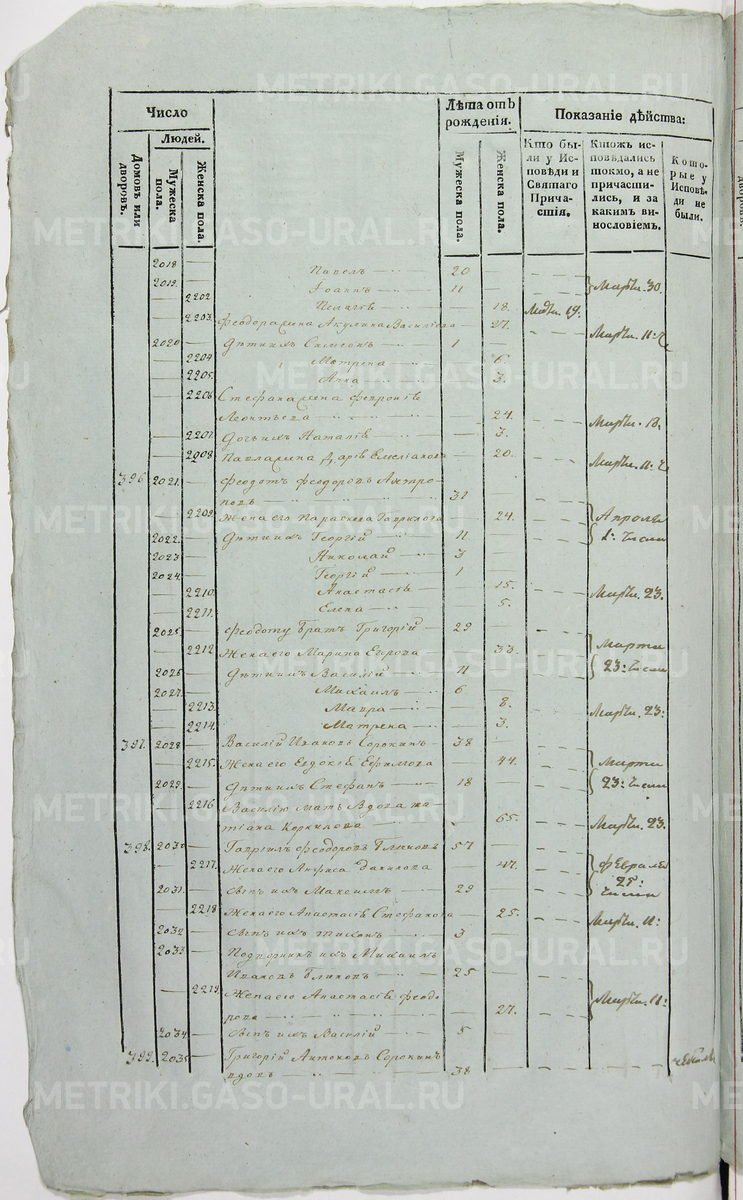 Число
Лѣта отъ рожденія.
Показаніе дѣйства:
Людей.
Домовъ или дворовъ.
Мужеска пола.
Женска пола.
Мужеска пола.
Женска пола.
Кто были у Исповѣди и Святаго Причастія.
Ктожъ исповѣдались токмо, а не причастились, и за какимъ винословіемъ.
Которые у Исповѣди не были.
2018 — Павелъ — 20 —
2019 — Іоаннъ — 11 — Марта. 30.
2202 Пелагія — 18.
2203. Феодора жена Акулина Василіева — 27.
2020 — Дѣти ихъ Симеонъ — 1 — Марта. 11:
2204 Матрена — 6.
2205. Анна — 3.
2206 Стефана жена Феврониѣ
Леонтьева — 24.
2207. Дочь ихъ Наталіѣ — 3. Марта. 13.
2208 Павла жена Даріѣ Емеліанова — 20. Марта. 11:
396. 2021. Феодотъ Феодоровъ
31 —
2209. Жена его Параскева Гаврилова — 24. Апрѣля
2022. Дѣти ихъ Георгій — 11 — 1: числа
2023 — Николай — 3 —
2024. Георгій — 1 —
2210. Анастасіѣ — 15. Марта. 23.
2211. Елена — 5.
2025. Феодоту братъ Григорій — 29 —
2212 Жена его Марина Егорова — 33 Марта
2026 — Дѣти ихъ Василій — 11 — 23: числа
2027. — Михаилъ — 6 —
2213. Мавра — 8. Марта. 23:
2214. Матрена — 3.
397. 2028. Василій Ивановъ Сорокинъ — 38 —
2215. Жена его Евдокіѣ Ефимова — 44. Марта
2029. Дѣти ихъ Стефанъ — 18 — 23: числа
2216 Василію мать вдова Та-
тіана Корнилова — 65. Марта. 23.
398. 2030 Гавріилъ Феодоровъ — 57 —
2217. Жена его Анфиса Данилова — 47. Февраля
2031. Сынъ ихъ Максимъ — 29 — 25: числа
2218 Жена его Анастасіѣ Стефанова — 25. Марта. 11:
2032 — Сынъ ихъ Тихонъ — 3 —
2033 — ихъ Михаилъ
Ивановъ — 25 —
2219. Жена его Анастасіѣ Феодо-
рова — 27. Марта. 11:
2034 Сынъ ихъ Василій — 5 —
399. 2035 Григорій Антоновъ Сорокинъ
вдовъ — 38 —
METRIKI.GASO-URAL.RU